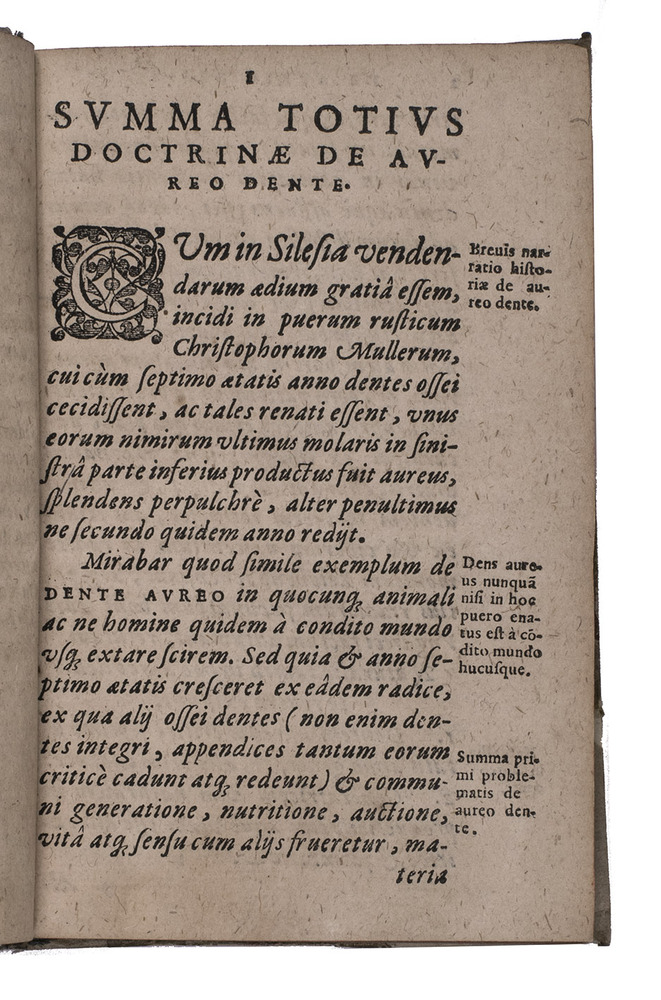 I
SVMMA TOTIVS
DOCTRINÆ DE AV-
REO DENTE.
CVm in Silesia venden-
darum ædium gratiâ essem,
incidi in puerum rusticum
Christophorum Mullerum,
cui cùm septimo ætatis anno dentes ossei
cecidissent, ac tales renati essent, vnus
eorum nimirum vltimus molaris in sini-
strâ parte inferius productus fuit aureus,
splendens perpulchrè, alter penultimus
ne secundo quidem anno redijt.
Mirabar quod simile exemplum de
DENTE AVREO in quocunq; animali
ac ne homine quidem à condito mundo
vsq; extare scirem. Sed quia & anno se-
ptimo ætatis cresceret ex eâdem radice,
ex qua alij ossei dentes (non enim den-
tes integri, appendices tantum eorum
criticè cadunt atq; redeunt) & commu-
ni generatione, nutritione, auctione,
vitâ atq; sensu cum alijs frueretur, ma-
teria
Breuis nar-
ratio histo-
riæ de au-
reo dente.
Dens aure-
us nunquã
nisi in hoc
puero ena-
tus est à cõ-
dito mundo
hucusque.
Summa pri-
mi proble-
matis de
aureo den-
te.